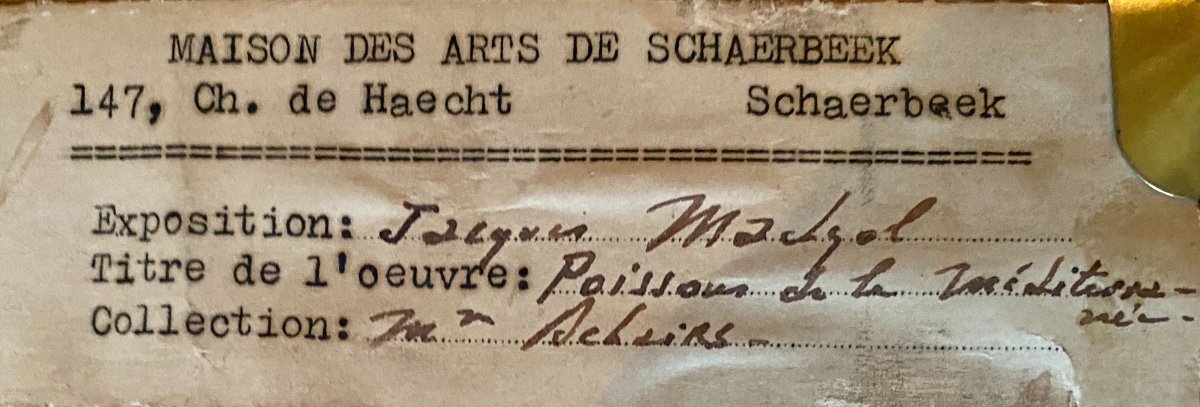 MAISON DES ARTS DE SCHAERBEEK
147, Ch. de Haecht Schaerbeek
=======================================
Exposition: Jacques Madyol
Titre de l'oeuvre: Poissons de la Méditerra-
née-
Collection: Mm